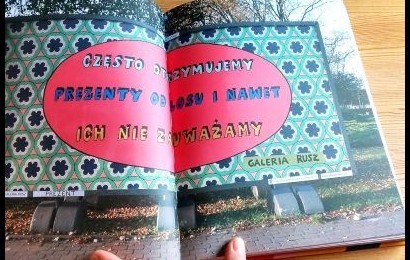 CZĘSTO OTRZYMUJEMY
PREZENTY OD LOSU I NAWET
ICH NIE ZAUWAŻAMY
GALERIA RUSZ
PREZENT